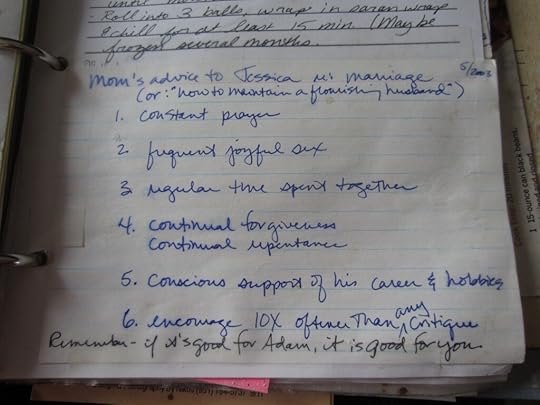 - Roll into 3 balls, wrap in saran wrap
& chill for at least 15 min. (Maybe
frozen several months.
Mom's advice to Jessica re: marriage 5/2003
(or: "how to maintain a flourishing husband")
1. constant prayer
2. frequent joyful sex
3 regular time spent together
4. continual forgiveness
continual repentance
5. Conscious support of his career & hobbies
6. encourage 10X oftener than any critique
Remember - if it's good for Adam, it is good for you
1 15-ounce can black beans,